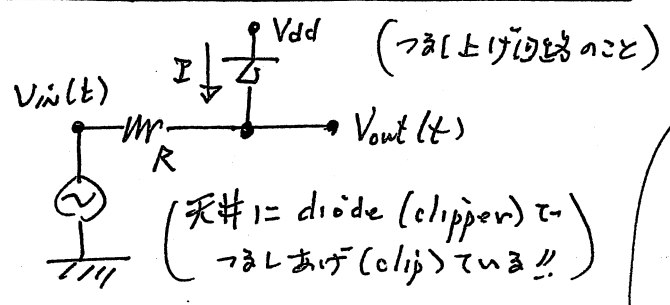 Vdd
(つるし上げ回路のこと)
I
Vin(t)
Vout(t)
R
(天井に diode (clipper) で
つるしあげ (clip) ている!!)